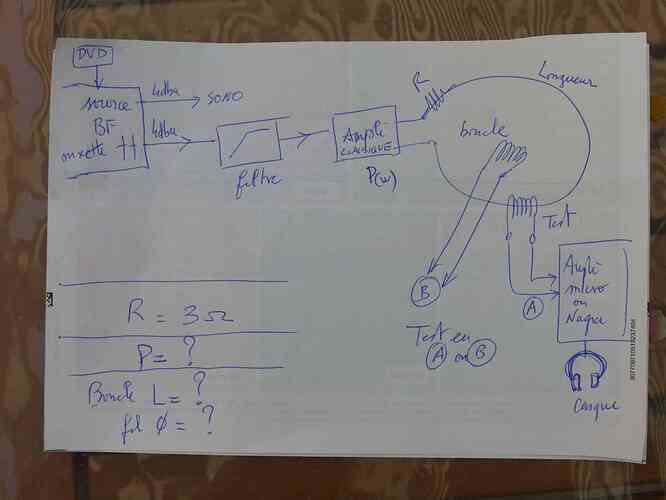 DVD
source
BF
mixette
4dbu
SONO
4dbu
filtre
Ampli
CLASSIQUE
P(w)
R
Longueur
boucle
Test
B
A
Ampli
micro
ou
Nagra
Casque
Test en
A ou B
R = 3Ω
P = ?
Boucle L = ?
fil Ø = ?